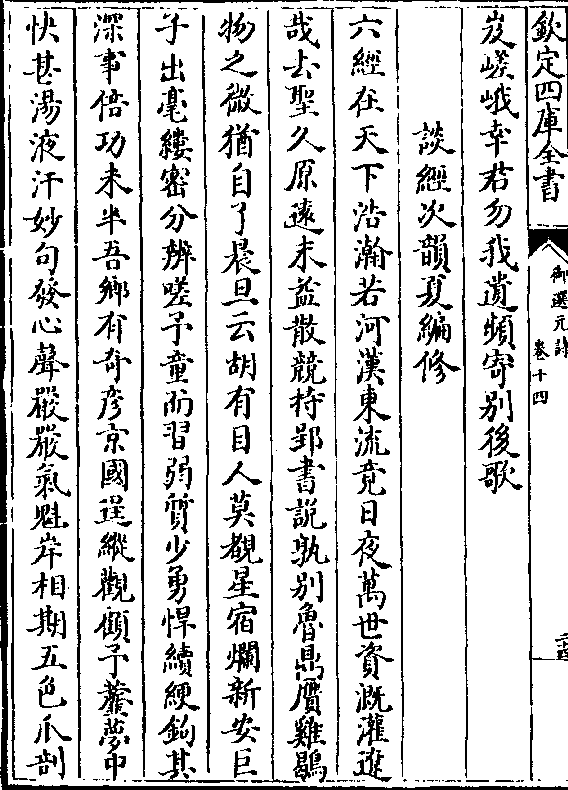 欽定四庫全書
御選元詩
卷十四
岌嵯峨幸君勿我遺頻寄别後歌
談經次韻夏編修
六經在天下浩瀚若河漢東流竟日夜萬世資溉灌邈
哉去聖久原遠末益散競持郢書説孰别魯鼎贋雞鶋
物之微猶自了晨旦云胡有目人莫覩星宿爛新安巨
子出毫縷宻分辨嗟予童而習弱質少勇悍續綆鉤其
深事倍功未半吾鄉有奇彦京國逞縱觀顧予虀夢中
快甚湯液汗妙句發心聲嚴嚴氣魁岸相期五色爪剖